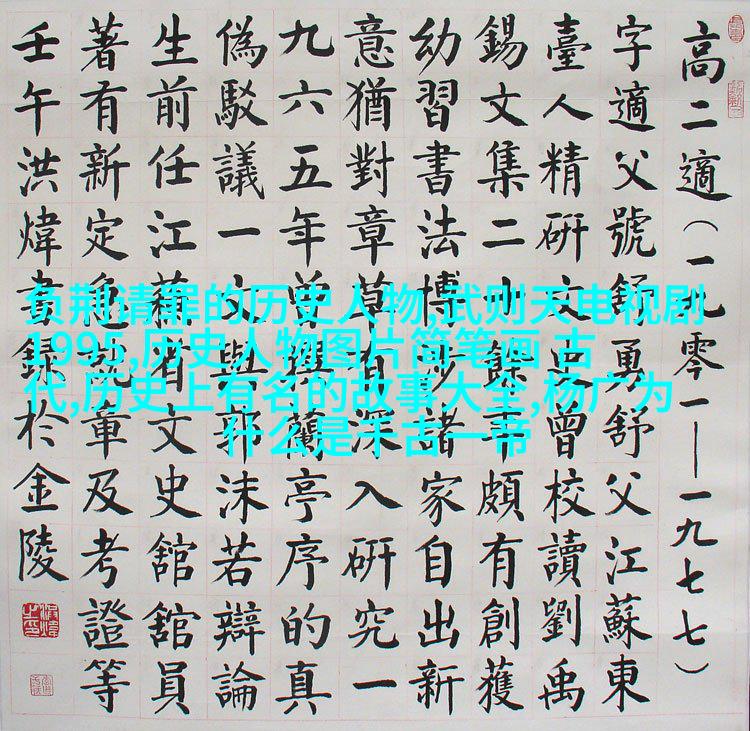 高二適（一九零一——一九七七）
字適父號舒勇舒父江蘇東
臺人精研文史曾校讀劉禹
錫文集二餘年頗有創獲
幼習書法博涉諸家自出新
意猶對章草有深入研究一
九六五年曾撰蘭亭序的真
偽駁議一文與郭沫若辯論
生前任江蘇省文史館館員
著有新定急就章及考證等
壬午洪煒書錄於金陵
负荆请罪的历史人物,武则天电视剧
1995,历史人物图片简笔画 古
代,历史上有名的故事大全,杨广为
什么是千古一帝